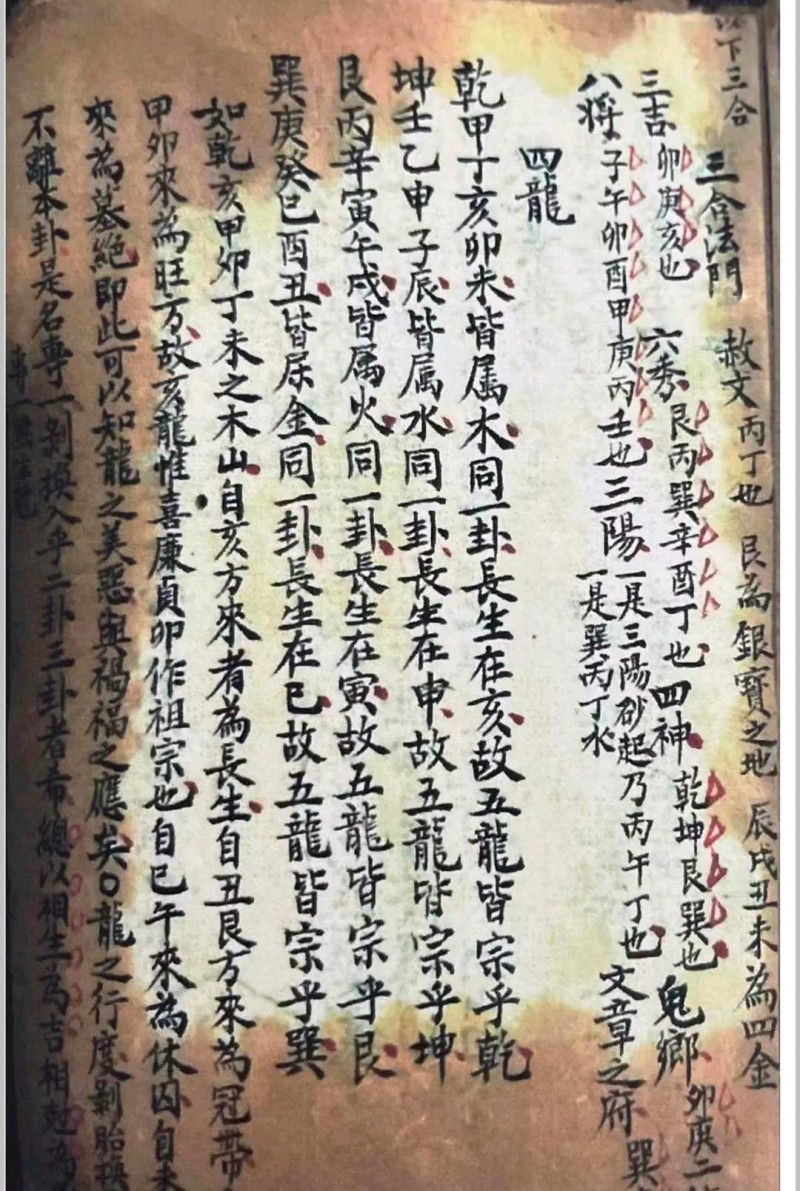 以下三合
三合法門　赦文丙丁也　艮為銀寶之地　辰戌丑未為四金
三吉卯庚亥也　六秀艮丙巽辛酉丁也　四神乾坤艮巽也　鬼鄉卯庚二
八將子午卯酉甲庚丙壬也　三陽一是三陽砂起乃丙午丁也　一是巽丙丁水　文章之府巽
四龍
乾甲丁亥卯未皆属木同一卦長生在亥故五龍皆宗乎乾
坤壬乙申子辰皆属水同一卦長生在申故五龍皆宗乎坤
艮丙辛寅午戌皆属火同一卦長生在寅故五龍皆宗乎艮
巽庚癸巳酉丑皆属金同一卦長生在巳故五龍皆宗乎巽
如乾亥甲卯丁未之木山自亥方來者為長生自丑艮方來為冠帶
甲卯來為旺方故亥龍惟喜廉貞卯作祖宗也自巳午來為休囚自未
來為墓絕即此可以知龍之美惡與禍福之應矣○龍之行度剝胎換
不離本卦是名專一剝換入乎二卦三卦者希總以相生為吉相尅為